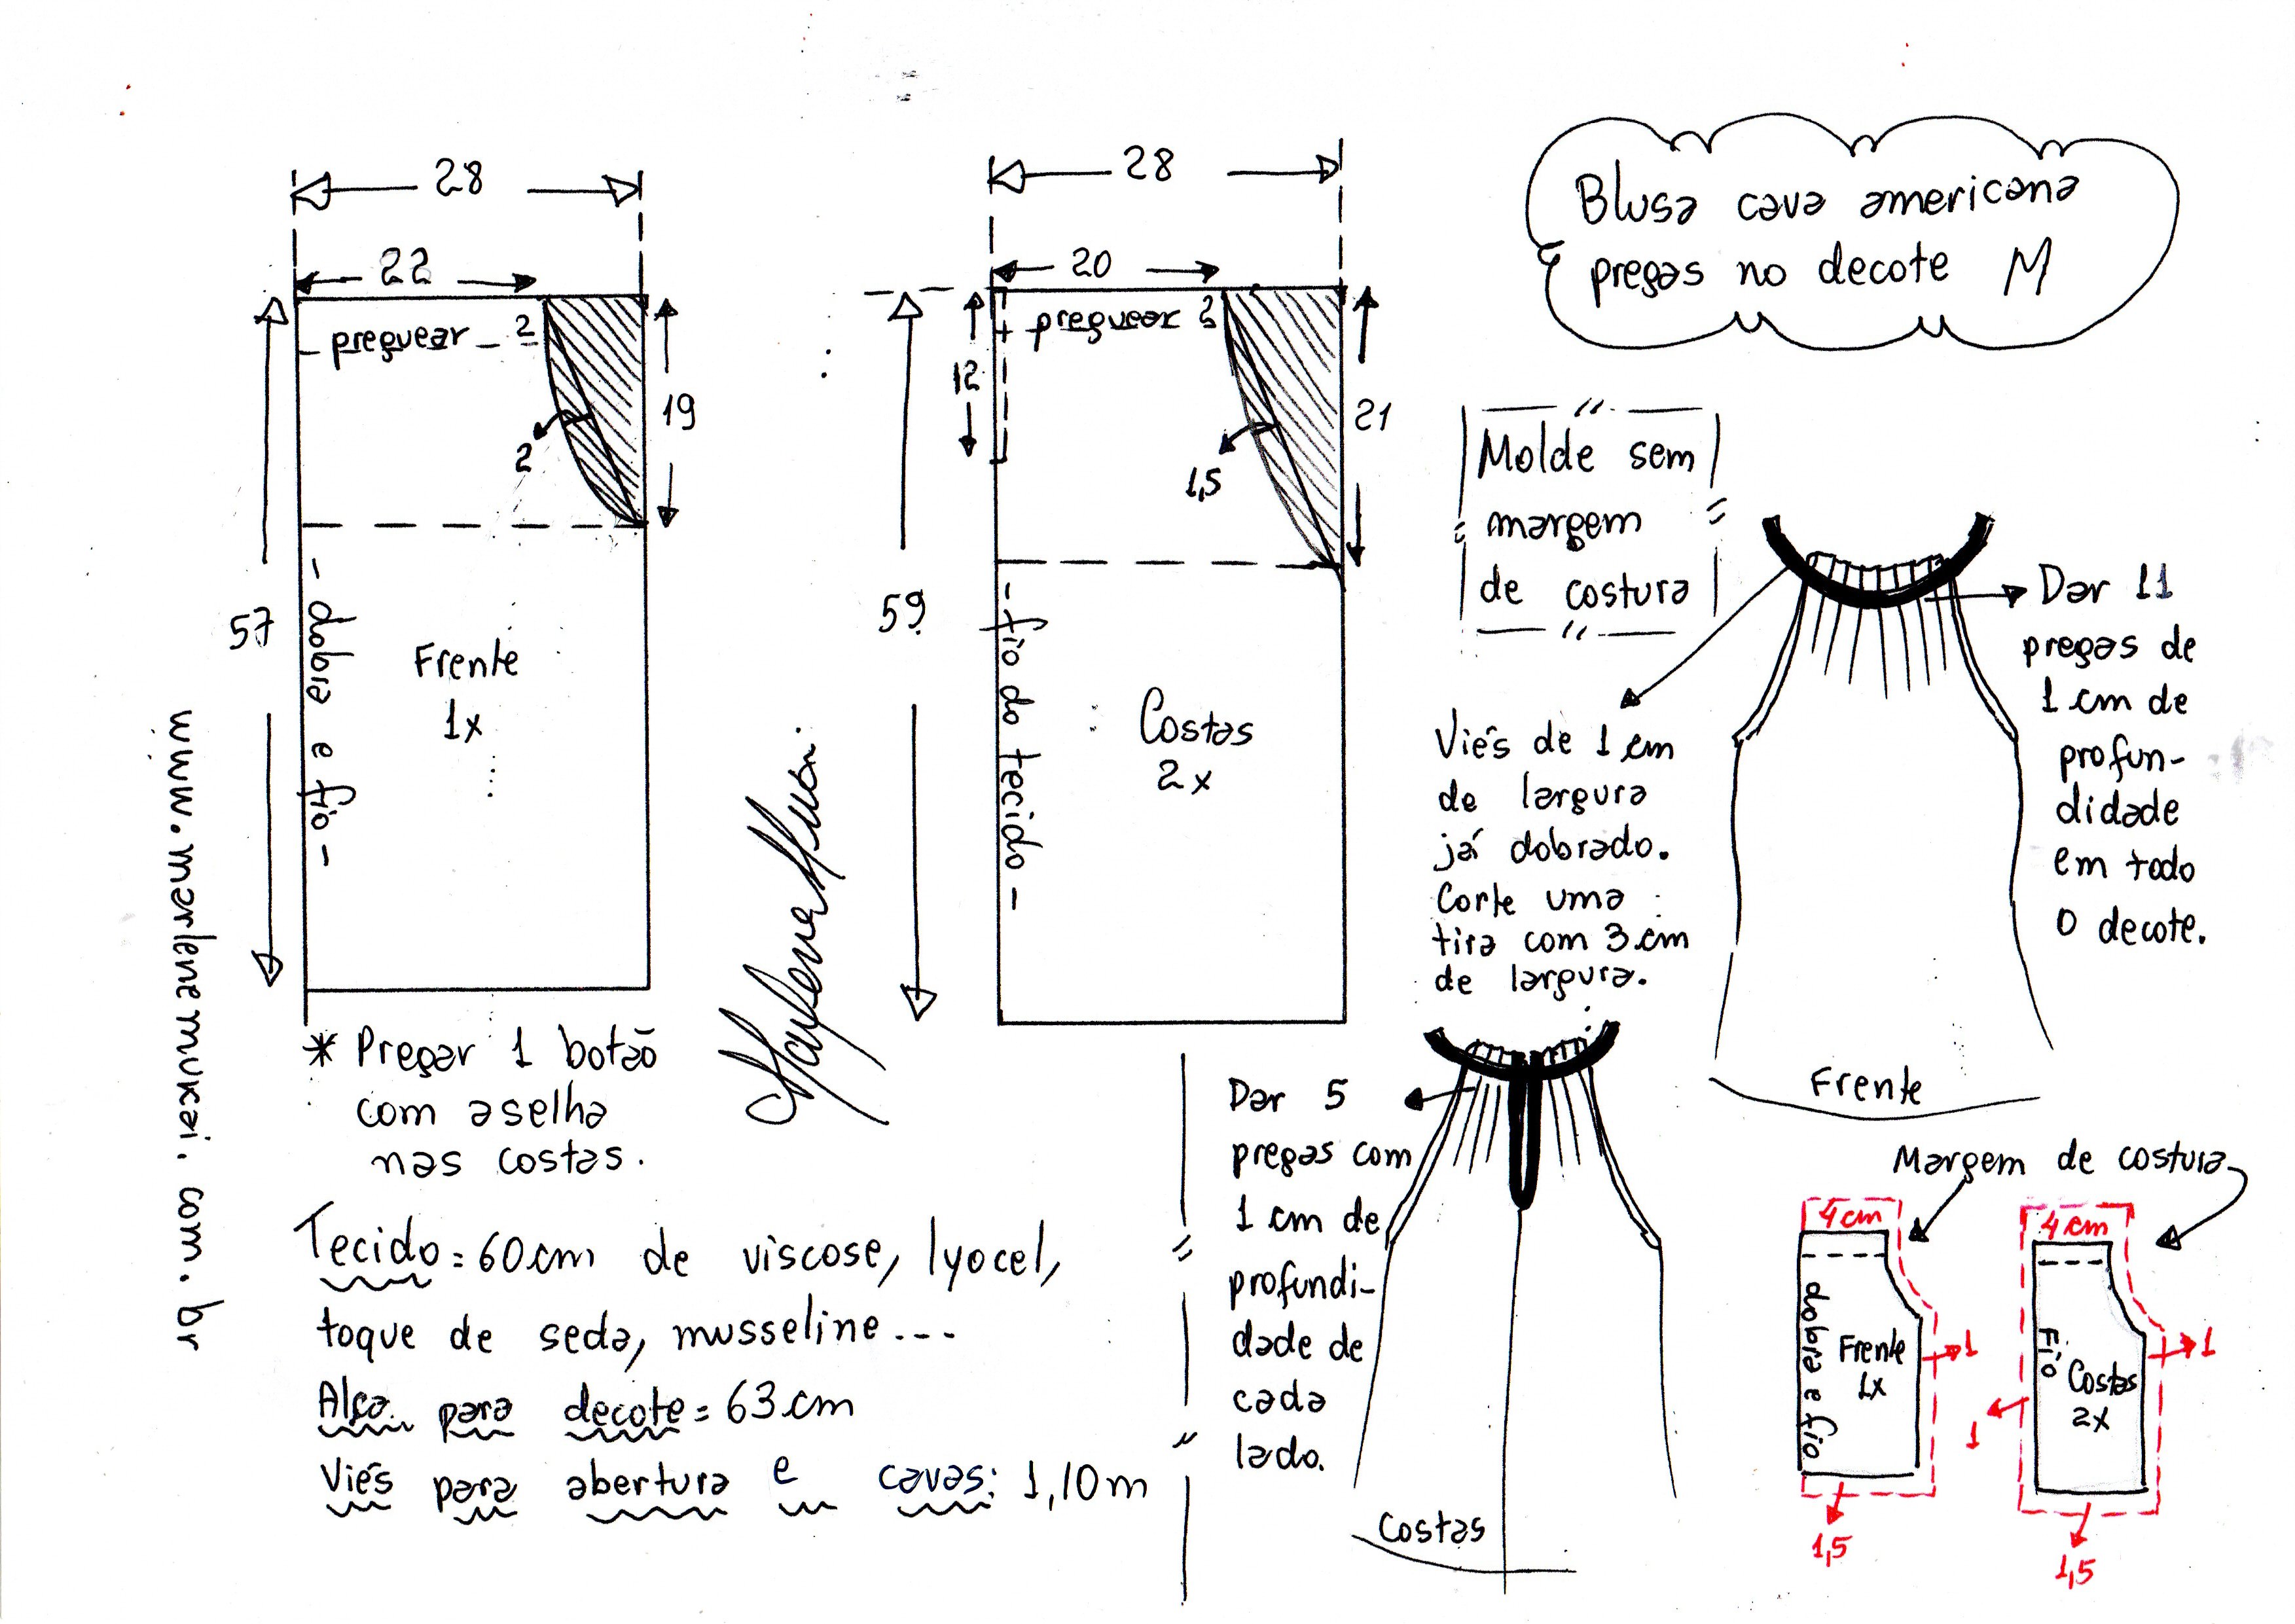 28
22
preguear 2
19
2
57
dobra e fio
Frente
1x
28
20
preguear
12
21
1,5
59
fio do tecido
Costas
2x
Blusa cava americana
pregas no decote M
Molde sem
margem
de costura
Viés de 1 cm
de largura
já dobrado.
Corte uma
tira com 3 cm
de largura.
Dar 11
pregas de
1 cm de
profun-
didade
em todo
o decote.
Frente
www.marlenemukai.com.br
* Pregar 1 botão
com aselha
nas costas.
Tecido = 60cm de viscose, lyocel,
toque de seda, musseline...
Alça para decote = 63cm
Viés para abertura e cavas: 1,10m
Dar 5
pregas com
1 cm de
profundi-
dade de
cada
lado.
Costas
Margem de costura
4cm
dobra e fio
Frente
1x
1
1,5
4cm
Fio
Costas
2x
1
1
1,5